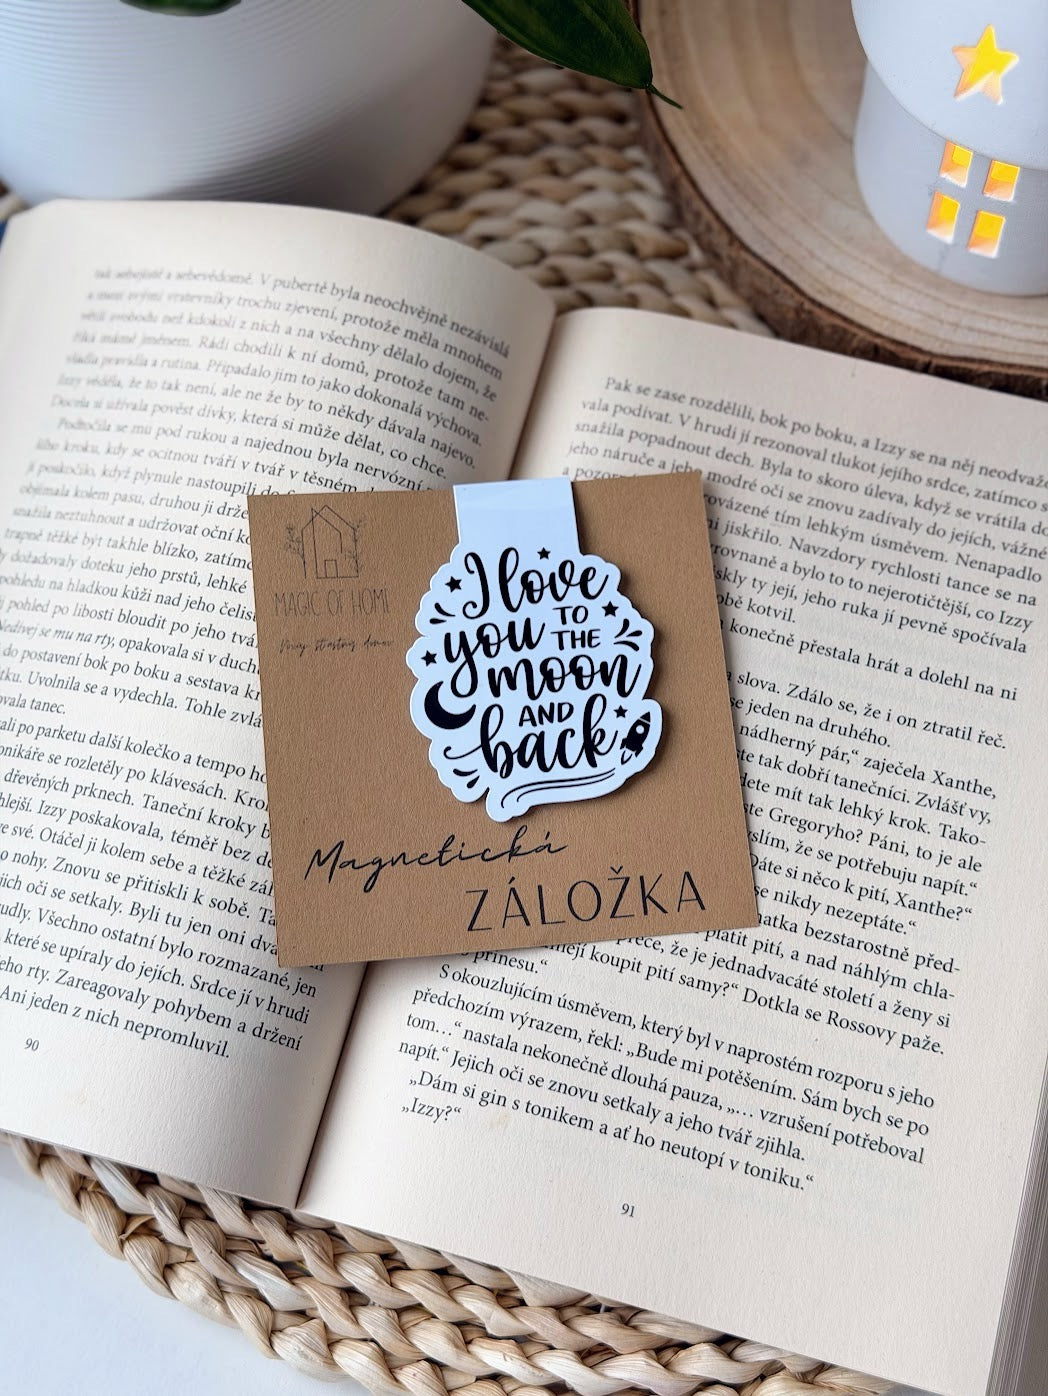 tak sebejistě a sebevědomě. V pubertě byla neochvějně nezávislá
a mezi svými vrstevníky trochu zjevení, protože měla mnohem
větší svobodu než kdokoli z nich a na všechny dělalo dojem, že
říká mámě jménem. Rádi chodili k ní domů, protože tam ne-
vládla pravidla a rutina. Připadalo jim to jako dokonalá výchova.
Izzy věděla, že to tak není, ale ne že by to někdy dávala najevo.
Docela si užívala pověst dívky, která si může dělat, co chce.
Podtočila se mu pod rukou a najednou byla nervózní
kroku, kdy se ocitnou tváří v tvář v těsném
poskočilo, když plynule nastoupili do
objímala kolem pasu, druhou ji drže
snažila neztuhnout a udržovat oční
trapně těžké být takhle blízko, zatímc
dožadovaly doteku jeho prstů, lehké
pohledu na hladkou kůži nad jeho čelis
pohled po libosti bloudit po jeho tvá
Nedívej se mu na rty, opakovala si v duch
do postavení bok po boku a sestava
Uvolnila se a vydechla. Tohle zvlá
tanec.
po parketu další kolečko a tempo
se rozletěly po klávesách.
dřevěných prknech. Taneční kroky
Izzy poskakovala, téměř bez
své. Otáčel ji kolem sebe a těžké
nohy. Znovu se přitiskli k sobě.
jich oči se setkaly. Byli tu jen oni
Všechno ostatní bylo rozmazané, jen
které se upíraly do jejích. Srdce jí v hrudi
rty. Zareagovaly pohybem a držení
Ani jeden z nich nepromluvil.
90
MAGIC OF HOME
I love
you TO
THE
moon
AND
back
Magnetická
ZÁLOŽKA
Pak se zase rozdělili, bok po boku, a Izzy se na něj neodvaž
vala podívat. V hrudi jí rezonoval tlukot jejího srdce, zatímco s
snažila popadnout dech. Byla to skoro úleva, když se vrátila do
jeho náruče a jeho modré oči se znovu zadívaly do jejích, vážné
a pozor rovázené tím lehkým úsměvem. Nenapadlo
jiskřilo. Navzdory rychlosti tance se na
rovnaně a bylo to to nejerotičtější, co Izzy
ty její, jeho ruka jí pevně spočívala
kotvil.
konečně přestala hrát a dolehl na ni
slova. Zdálo se, že i on ztratil řeč.
se jeden na druhého.
nádherný pár,“ zaječela Xanthe,
ste tak dobří tanečníci. Zvlášť vy,
mít tak lehký krok. Tako-
Gregoryho? Páni, to je ale
myslím, že se potřebuju napít.“
Dáte si něco k pití, Xanthe?“
se nikdy nezeptáte.“
bezstarostně před-
platit pití, a nad náhlým chla-
přece, že je jednadvacáté století a ženy si
koupit pití samy?“ Dotkla se Rossovy paže.
přinesu.“
S okouzlujícím úsměvem, který byl v naprostém rozporu s jeho
předchozím výrazem, řekl: „Bude mi potěšením. Sám bych se po
tom…“ nastala nekonečně dlouhá pauza, „… vzrušení potřeboval
napít.“ Jejich oči se znovu setkaly a jeho tvář zjihla.
„Dám si gin s tonikem a ať ho neutopí v toniku.“
„Izzy?“
91